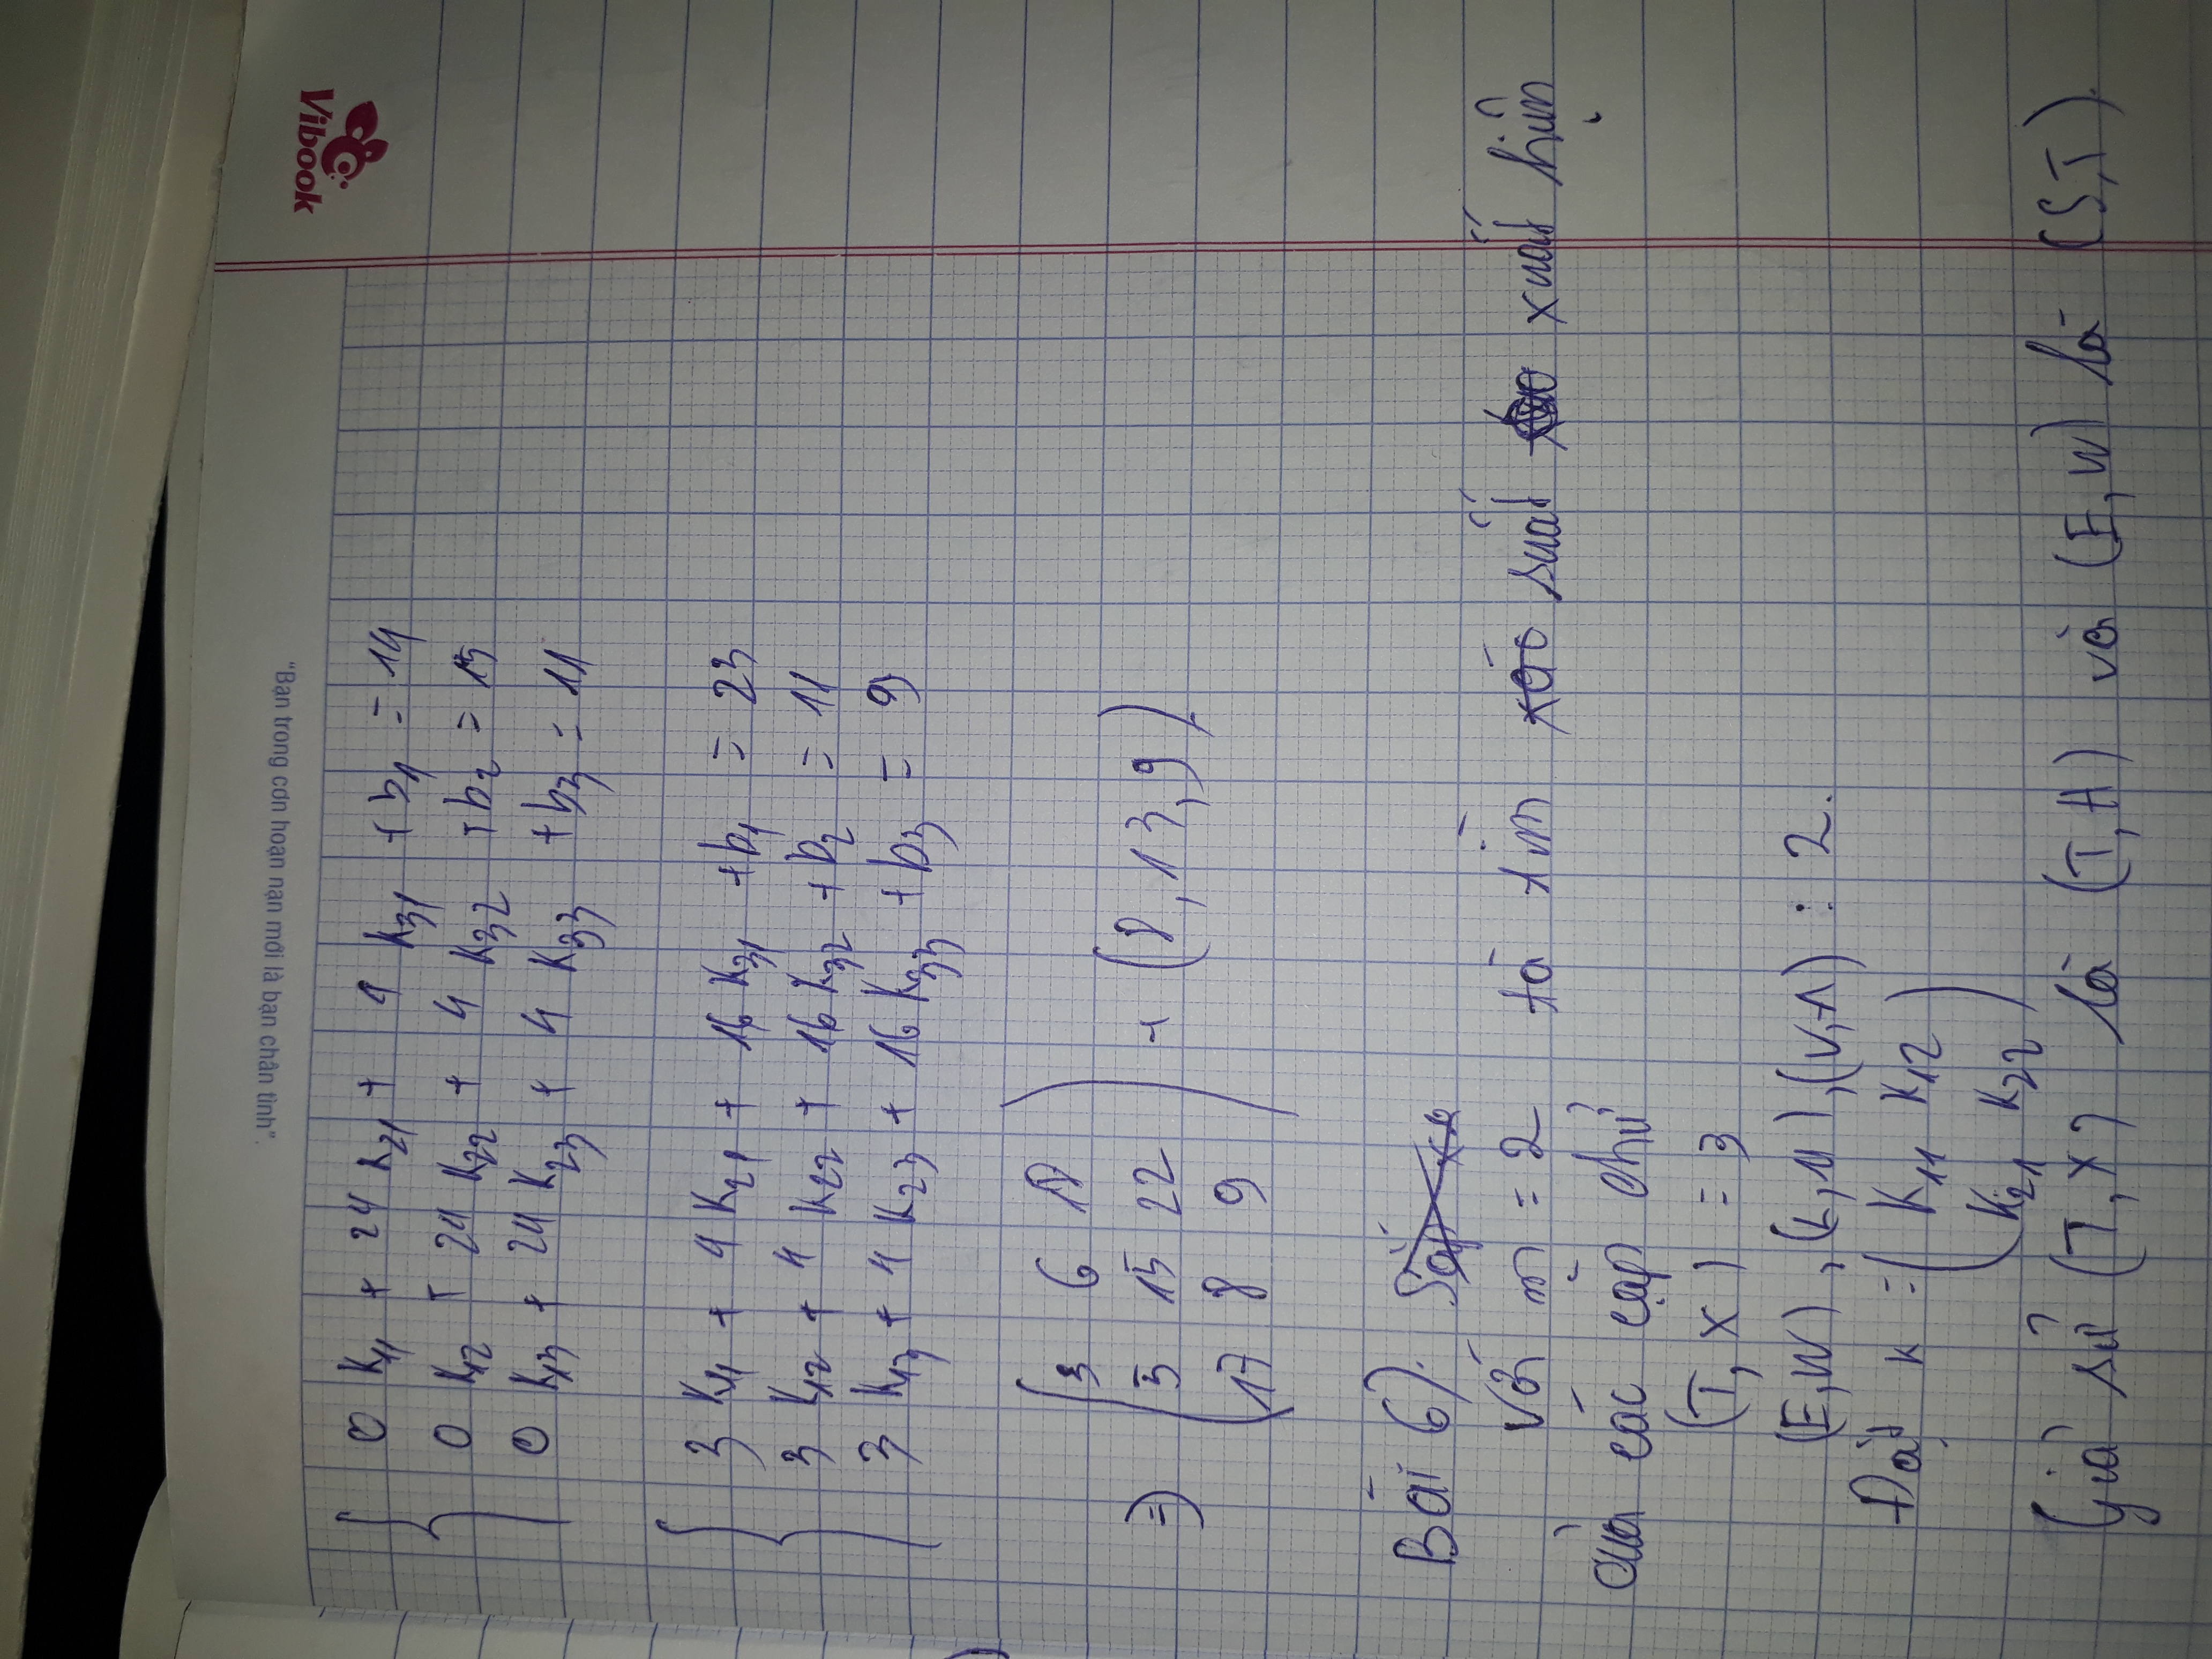 "Bạn trong cơn hoạn nạn mới là bạn chân tình".
Vibook
0 K11 + 24 K21 + 4 K31 + b1 = 14
0 K12 + 24 K22 + 4 K32 + b2 = 15
0 K13 + 24 K23 + 4 K33 + b3 = 11
3 K11 + 4 K21 + 16 K31 + b1 = 23
3 K12 + 4 K22 + 16 K32 + b2 = 11
3 K13 + 4 K23 + 16 K33 + b3 = 9
3 6 18
=> 5 15 22 + (8, 13, 9)
17 8 9
Bài 6).
Với m = 2 ta tìm suất xuất hiện
của các cặp chữ
(T, X) = 3
(E, W), : 2.
Đặt K = ( K11 K12
K21 K22 )
Giả sử (T, X) là (T, H) và (E, W) là (S, T).